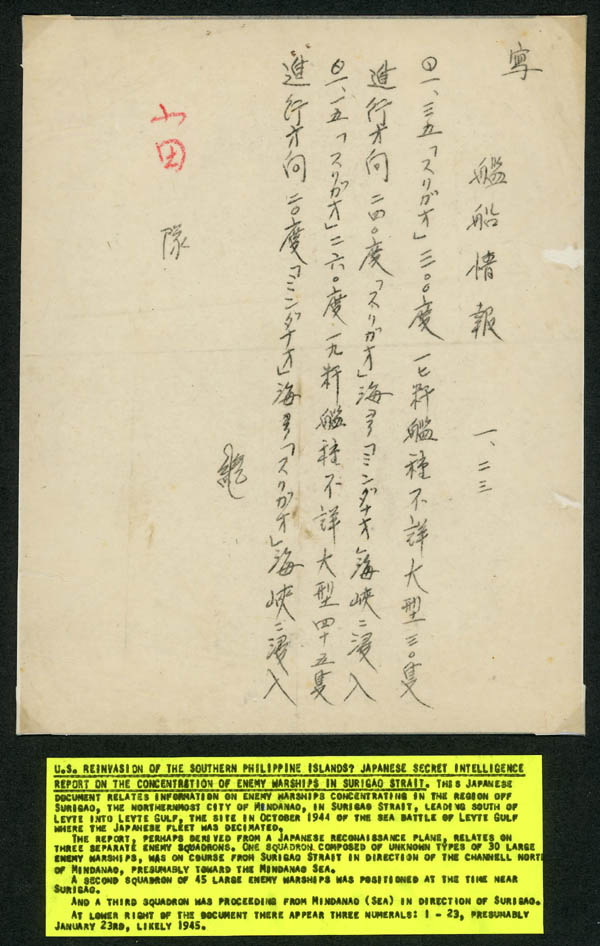 寫
艦船情報 一、二三
一、三五「スリガオ」三〇〇度 一七粁艦種不詳大型三〇隻
進行方向 二四〇度「スリガオ」海ヨリ「ミンダナオ」海峡ニ浸入
一、一五「スリガオ」二六〇度 一九粁艦種不詳大型四十五隻
進行方向 二〇度「ミンダナオ」海ヨリ「スリガオ」海峡ニ浸入
山田 隊
U.S. REINVASION OF THE SOUTHERN PHILIPPINE ISLANDS? JAPANESE SECRET INTELLIGENCE
REPORT ON THE CONCENTRATION OF ENEMY WARSHIPS IN SURIGAO STRAIT. THIS JAPANESE
DOCUMENT RELATES INFORMATION ON ENEMY WARSHIPS CONCENTRATING IN THE REGION OFF
SURIGAO, THE NORTHERNMOST CITY OF MINDANAO, IN SURIGAO STRAIT, LEADING SOUTH OF
LEYTE INTO LEYTE GULF, THE SITE IN OCTOBER 1944 OF THE SEA BATTLE OF LEYTE GULF
WHERE THE JAPANESE FLEET WAS DECIMATED.
THE REPORT, PERHAPS DERIVED FROM A JAPANESE RECONAISSANCE PLANE, RELATES ON
THREE SEPARATE ENEMY SQUADRONS. ONE SQUADRON COMPOSED OF UNKNOWN TYPES OF 30 LARGE
ENEMY WARSHIPS, WAS ON COURSE FROM SURIGAO STRAIT IN DIRECTION OF THE CHANNELL NORTH
OF MINDANAO, PRESUMABLY TOWARD THE MINDANAO SEA.
A SECOND SQUADRON OF 45 LARGE ENEMY WARSHIPS WAS POSITIONED AT THE TIME NEAR
SURIGAO.
AND A THIRD SQUADRON WAS PROCEEDING FROM MINDANAO (SEA) IN DIRECTION OF SURIGAO.
AT LOWER RIGHT OF THE DOCUMENT THERE APPEAR THREE NUMERALS: 1 - 23, PRESUMABLY
JANUARY 23RD, LIKELY 1945.